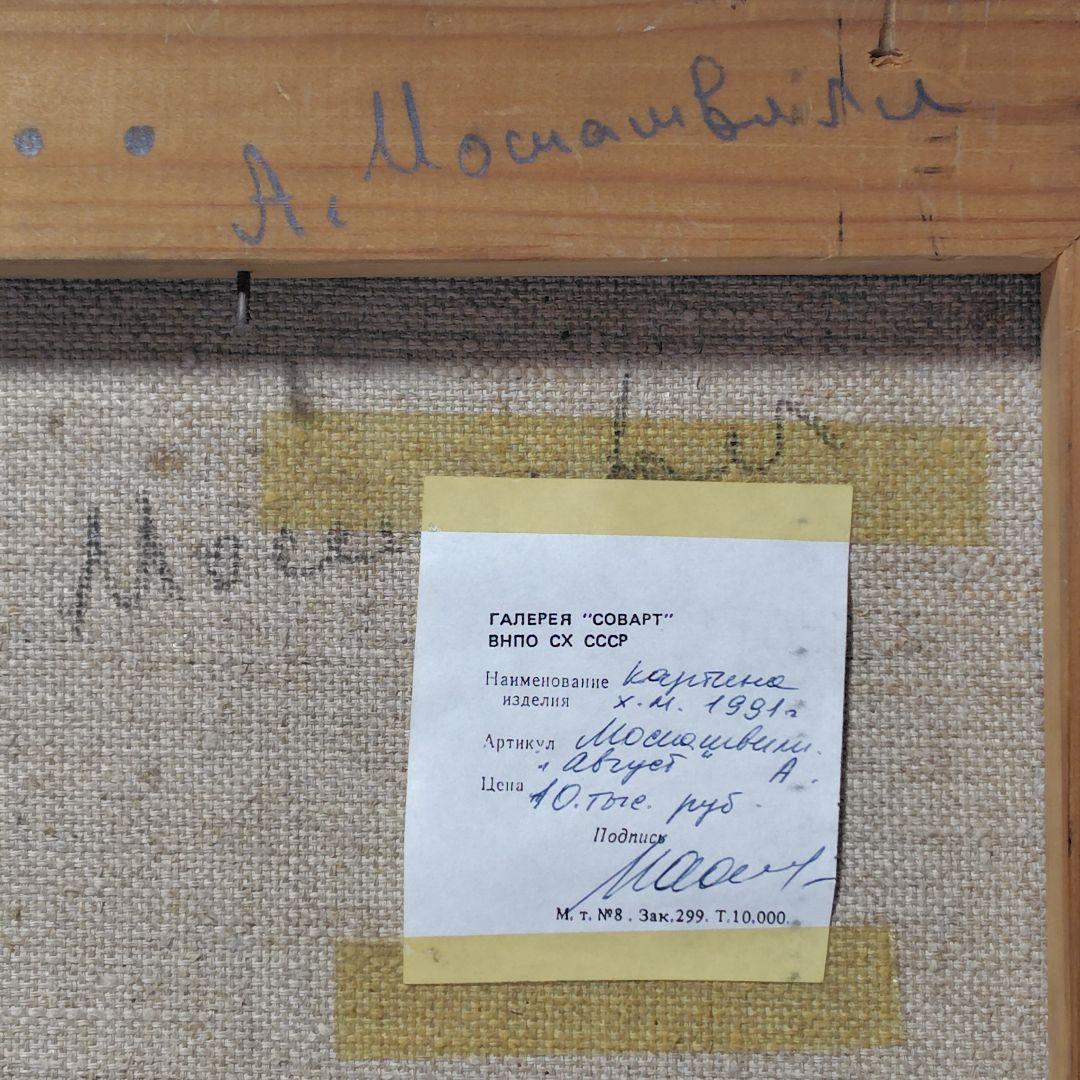 А. Мосиашвили
Моси
ГАЛЕРЕЯ "СОВАРТ"
ВНПО СХ СССР
Наименование картина
изделия х.м. 1991г
Артикул Мосиашвили.
"Август" А.
Цена 10.тыс. руб.
Подпись
М. т. №8. Зак.299. Т.10.000.